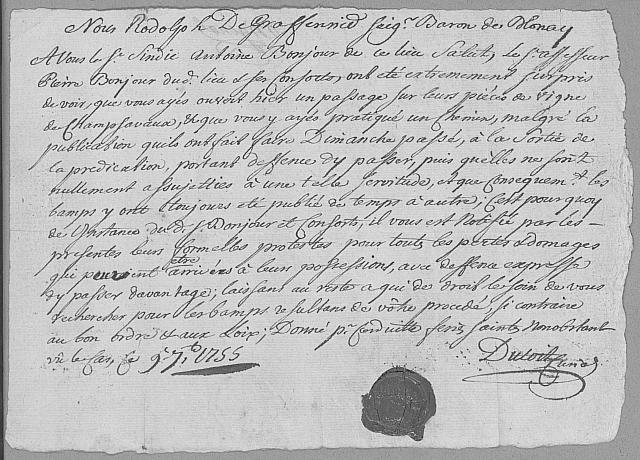 Nous Rodolph De Graffenried Seigr. Baron de Blonay
A Vous le Sr. Sindic Antoine Bonjour de ce lieu Salut, le Sr. assesseur
Pierre Bonjour dud. lieu & ses Consorts, ont été extremement surpris
de voir, que vous ayés ouvert hier un passage sur leurs piéces de Vigne
de Champsavaux, & que vous y ayés pratiqué un Chemin, malgré la
publication quils ont fait faire Dimanche passé, à la Sortie de
la predication, portant deffence d'y passer, puis quelles ne sont
nullement assujetties à une telle servitude, et que consequemt. les
bamps y ont toujours eté publié de temps à autre; C'est pourquoy
de l'instance du d. Sr. Bonjour et Consorts, il vous est Notifié par les-
presentes leurs formelles protestes pour touts les pertes & domages
qui pouroient etre arrivés à leurs possessions, avec deffence expresse
d'y passer davantage; laissant au reste a qui de droit le soin de vous
rechercher pour les bamps resultans de vôtre procedé, si contraire
au bon ordre & aux Loix; Donné pr. conduitte feries saintes nonobstant
vû le cas, ce 9e. 7bre. 1755
Dutoit